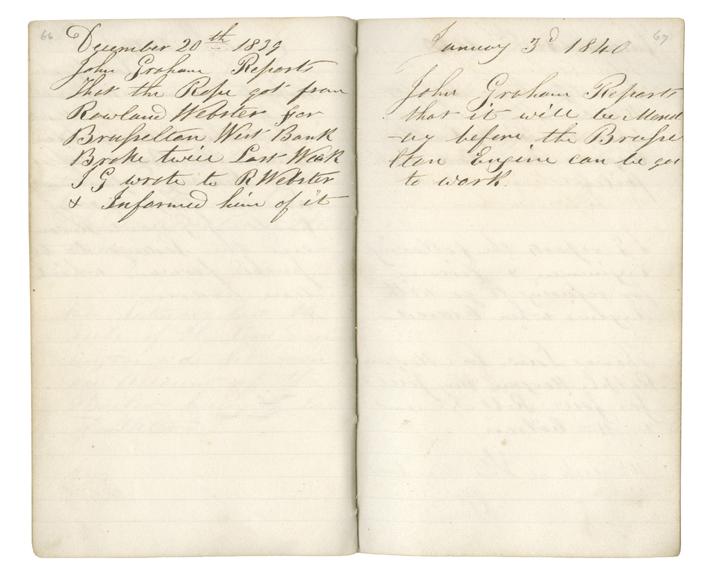 66
December 20th 1839
John Graham Reports
That the Rope got from
Rowland Webster for
Brusselton West Bank
Broke twice Last Week
J G wrote to R Webster
& Informed him of it
67
January 3d 1840
John Graham Reports
that it will be Mond
-ay before the Brusse
lton Engine can be got
to work.